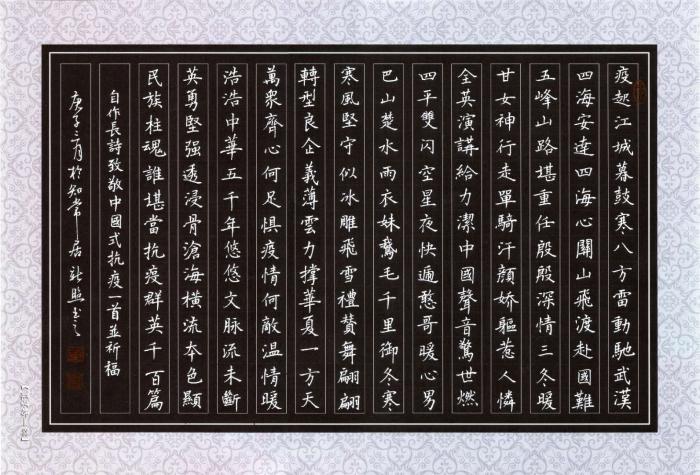 疫起江城暮鼓寒八方雷動馳武漢
四海安達四海心關山飛渡赴國難
五峰山路堪重任殷殷深情三冬暖
甘女神行走單騎汗顔嬌軀惹人憐
全英演講給力潔中國聲音驚世燃
四平雙閃空星夜快遞憨哥暖心男
巴山楚水雨衣妹鵞毛千里御冬寒
寒風堅守似冰雕飛雪禮贊舞翩翩
轉型良企義薄雲力撑華夏一方天
萬衆齊心何足惧疫情何敵温情暖
浩浩中華五千年悠悠文脉流未斷
英勇堅强透浸骨滄海横流本色顯
民族柱魂誰堪當抗疫群英千百篇
自作長詩致敬中國式抗疫一首並祈福
庚子三月於知常居